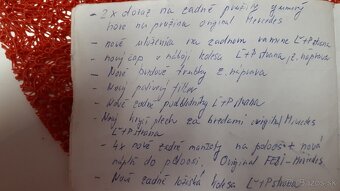 - 2x doraz na zadné pružiny gumený
nové na pružine original Mercedes
- nové uloženia na zadnom ramene L+P strana
- nový čap v náboji kolesa L+P strana z. náprava
- Nové brzdové trubky z. náprava
- Nový palivový filter
- Nové zadné podbehníky L+P strana
- Nový krycí plech za brzdami original Mercedes
L+P strana
- 4x nové zadné manžety na poloosi + nová
náplň do poloosí, Original FEBI-Mercedes
- Nové zadné ložiská kolesa L+P strana